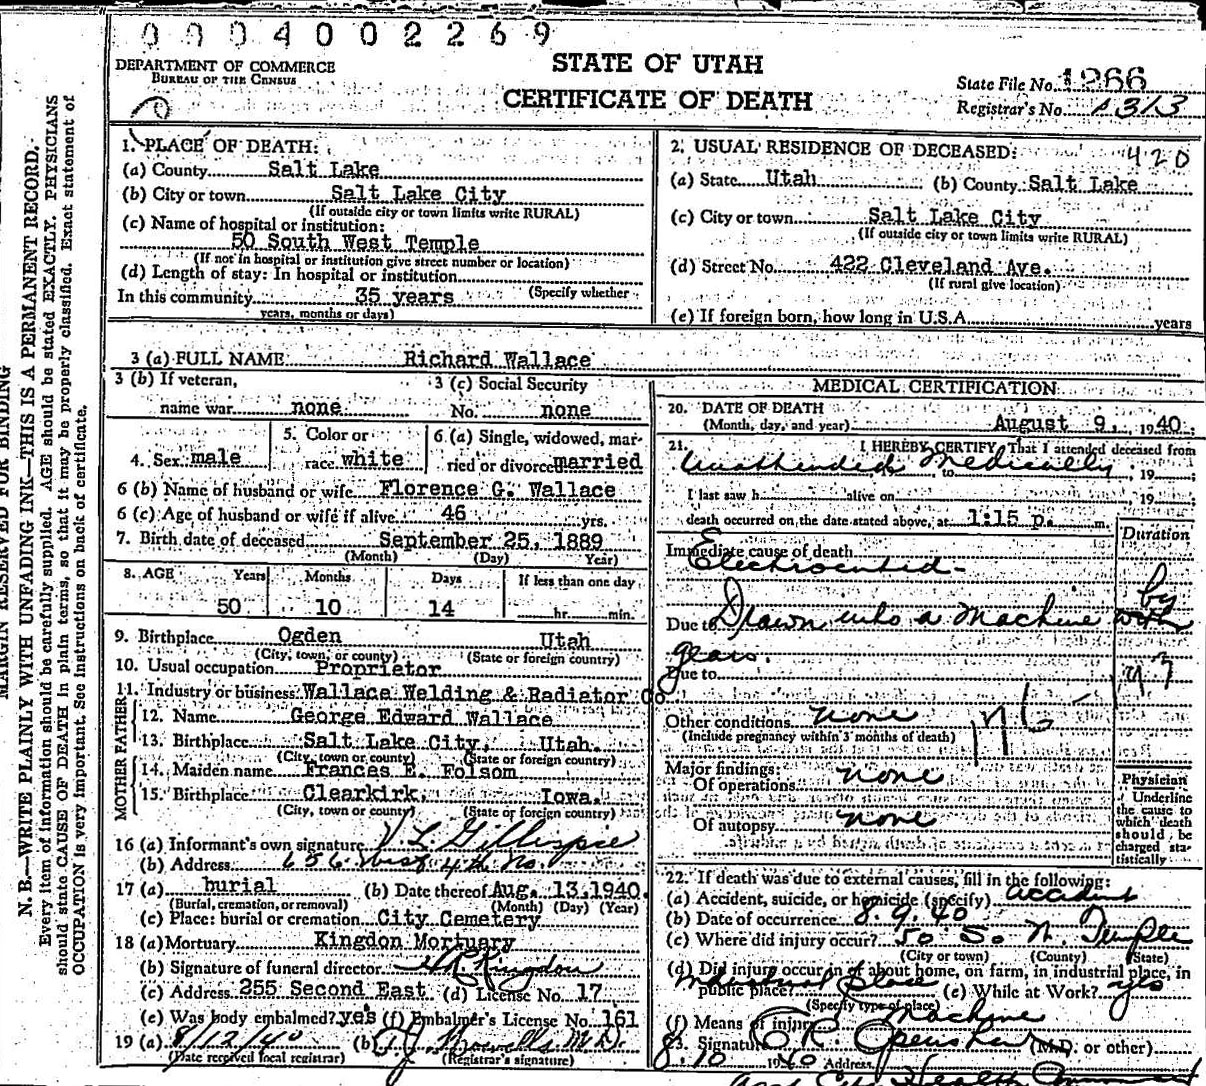 0 0 0 4 0 0 2 2 6 9
DEPARTMENT OF COMMERCE
BUREAU OF THE CENSUS
STATE OF UTAH
CERTIFICATE OF DEATH
State File No. 1266
Registrar's No. 1313
MARGIN RESERVED FOR BINDING
N. B.—WRITE PLAINLY WITH UNFADING INK—THIS IS A PERMANENT RECORD.
Every item of information should be carefully supplied. AGE should be stated EXACTLY. PHYSICIANS
should state CAUSE OF DEATH in plain terms, so that it may be properly classified. Exact statement of
OCCUPATION is very important. See instructions on back of certificate.
1. PLACE OF DEATH:
(a) County Salt Lake
(b) City or town Salt Lake City
(If outside city or town limits write RURAL)
(c) Name of hospital or institution:
50 South West Temple
(If not in hospital or institution give street number or location)
(d) Length of stay: In hospital or institution
(Specify whether
In this community 35 years
years, months or days)
2. USUAL RESIDENCE OF DECEASED: 420
(a) State Utah (b) County Salt Lake
(c) City or town Salt Lake City
(If outside city or town limits write RURAL)
(d) Street No. 422 Cleveland Ave.
(If rural give location)
(e) If foreign born, how long in U.S.A. years
3 (a) FULL NAME Richard Wallace
3 (b) If veteran,
name war none
3 (c) Social Security
No. none
4. Sex male
5. Color or
race white
6 (a) Single, widowed, mar-
ried or divorced married
6 (b) Name of husband or wife Florence G. Wallace
6 (c) Age of husband or wife if alive 46 yrs.
7. Birth date of deceased September 25, 1889
(Month) (Day) Year)
8. AGE Years Months Days If less than one day
50 10 14 hr. min.
9. Birthplace Ogden Utah
(City, town, or county) (State or foreign country)
10. Usual occupation Proprietor
11. Industry or business Wallace Welding & Radiator Co
FATHER
12. Name George Edward Wallace
13. Birthplace Salt Lake City, Utah.
(City, town or county) (State or foreign country)
MOTHER
14. Maiden name Frances E. Folsom
15. Birthplace Clearkirk, Iowa.
(City, town or county) (State or foreign country)
16 (a) Informant's own signature L Gillespie
(b) Address 656 West 4th No.
17 (a) burial (b) Date thereof Aug. 13, 1940
(Burial, cremation, or removal) (Month) (Day) (Year)
(c) Place: burial or cremation City Cemetery
18 (a) Mortuary Kingdon Mortuary
(b) Signature of funeral director Kingdon
(c) Address 255 Second East (d) License No. 17
(e) Was body embalmed? yes (f) Embalmer's License No. 161
19 (a) 8/12/40 (b) M.D.
(Date received local registrar) (Registrar's signature)
MEDICAL CERTIFICATION
20. DATE OF DEATH
(Month, day, and year) August 9, 1940;
21. I HEREBY CERTIFY, That I attended deceased from
Unattended Medically to , 19 ;
I last saw h alive on , 19 ;
death occurred on the date stated above, at 1:15 p. m.
Duration
Immediate cause of death
Electrocuted-
by
Due to Drawn into a Machine with
gears.
Due to
193
Other conditions none
(Include pregnancy within 3 months of death)
Major findings:
Of operations none
Of autopsy none
Physician
Underline
the cause to
which death
should be
charged sta-
tistically
22. If death was due to external causes, fill in the following:
(a) Accident, suicide, or homicide (specify) accident
(b) Date of occurrence 8.9.40
(c) Where did injury occur? 50 So W. Temple
(City or town) (County) (State)
(d) Did injury occur in or about home, on farm, in industrial place, in
public place? Industrial place (e) While at Work? yes
(Specify type of place)
(f) Means of injury Machine
23. Signature (M.D. or other)
8.10 1940 Address